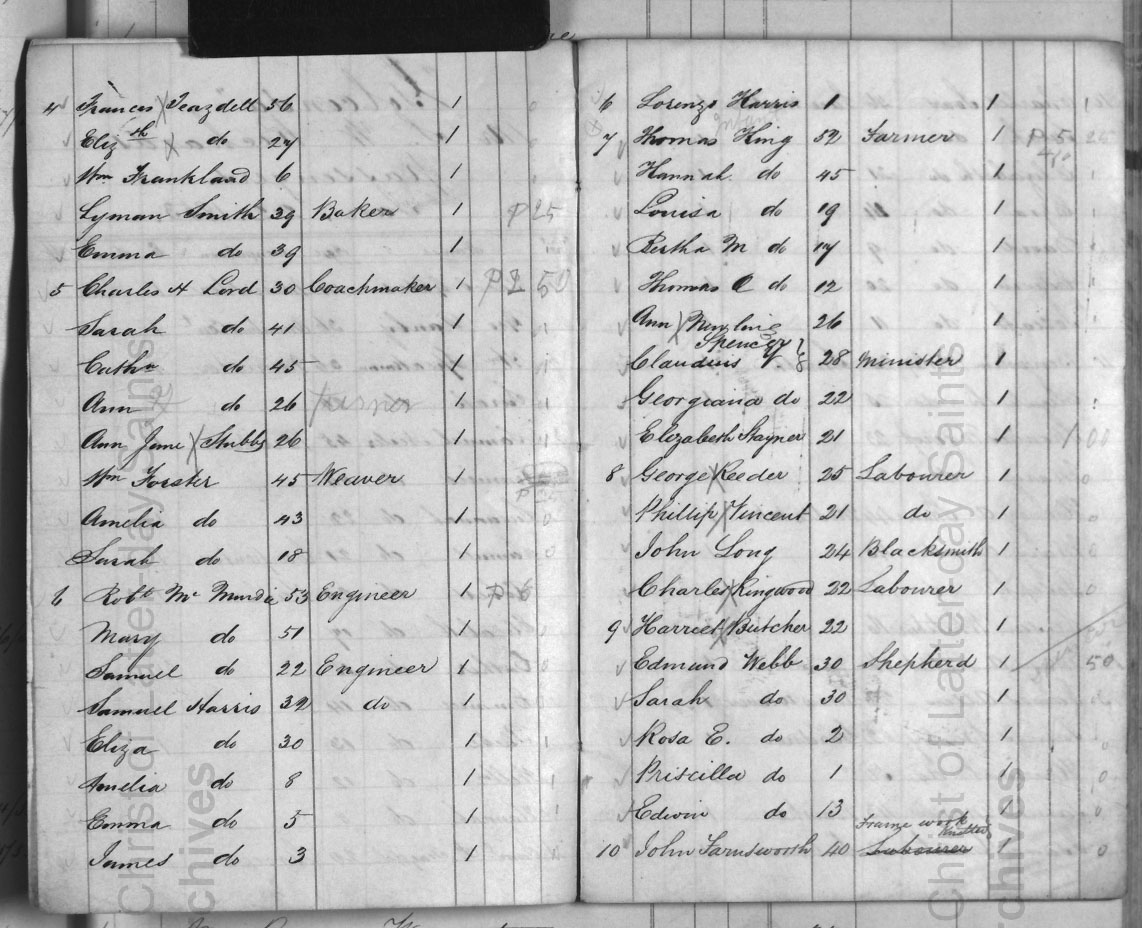 4 Frances Teazdell 56 1
Eliz th do 27 1
Wm Frankland 6 1
Lyman Smith 39 Baker 1 P 25
Emma do 39 1
5 Charles H Lord 30 Coachmaker 1 P 50
Sarah do 41 1
Cath do 45 1
Ann do 26 1
Ann Jane Stubbs 26 1
Wm Forster 45 Weaver 1
Amelia do 43 1
Sarah do 18 1
6 Robt Mc 53 Engineer 1
Mary do 51 1
Samuel do 22 Engineer 1
Samuel Harris 32 do 1
Eliza do 30 1
Amelia do 8 1
Emma do 5 1
James do 3 1
6 Lorenzo Harris 1 1
Infant
7 Thomas King 52 Farmer 1 P 5
Hannah do 45 1
Louisa do 19 1
Bertha M do 17 1
Thomas do 12 1
Ann 26 1
Spencer
Claudius 28 Minister 1
Georgiana do 22 1
Elizabeth Stayner 21 1
8 George Reeder 25 Labourer 1
Phillip Vincent 21 do 1
John Long 24 Blacksmith 1
Charles Ringwood 22 Labourer 1
9 Harriet Butcher 22 1
Edmund Webb 30 Shepherd 1 50
Sarah do 30 1
Rosa E. do 2 1
Priscilla do 1 1
Edwin do 13 1
Frame work Knitter
10 John Farnsworth 40 Labourer 1
Christ of Latter-day Saints
Archives
Christ of Latter-day Saints
Archives